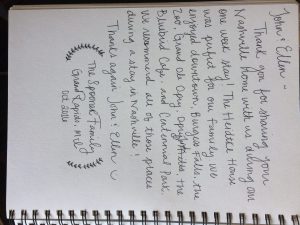 John & Ellen -
Thank you for sharing your
Nashville Home with us during our
one week stay! The Heidtke House
was perfect for our family. We
enjoyed downtown, Burgess Falls, the
Zoo, Grand Ole Opry, the
Bluebird Cafe, and Centennial Park.
We recommend all of those places
during a stay in Nashville!
Thanks again John & Ellen
The Family
Grand Rapids, MI
Oct 2021